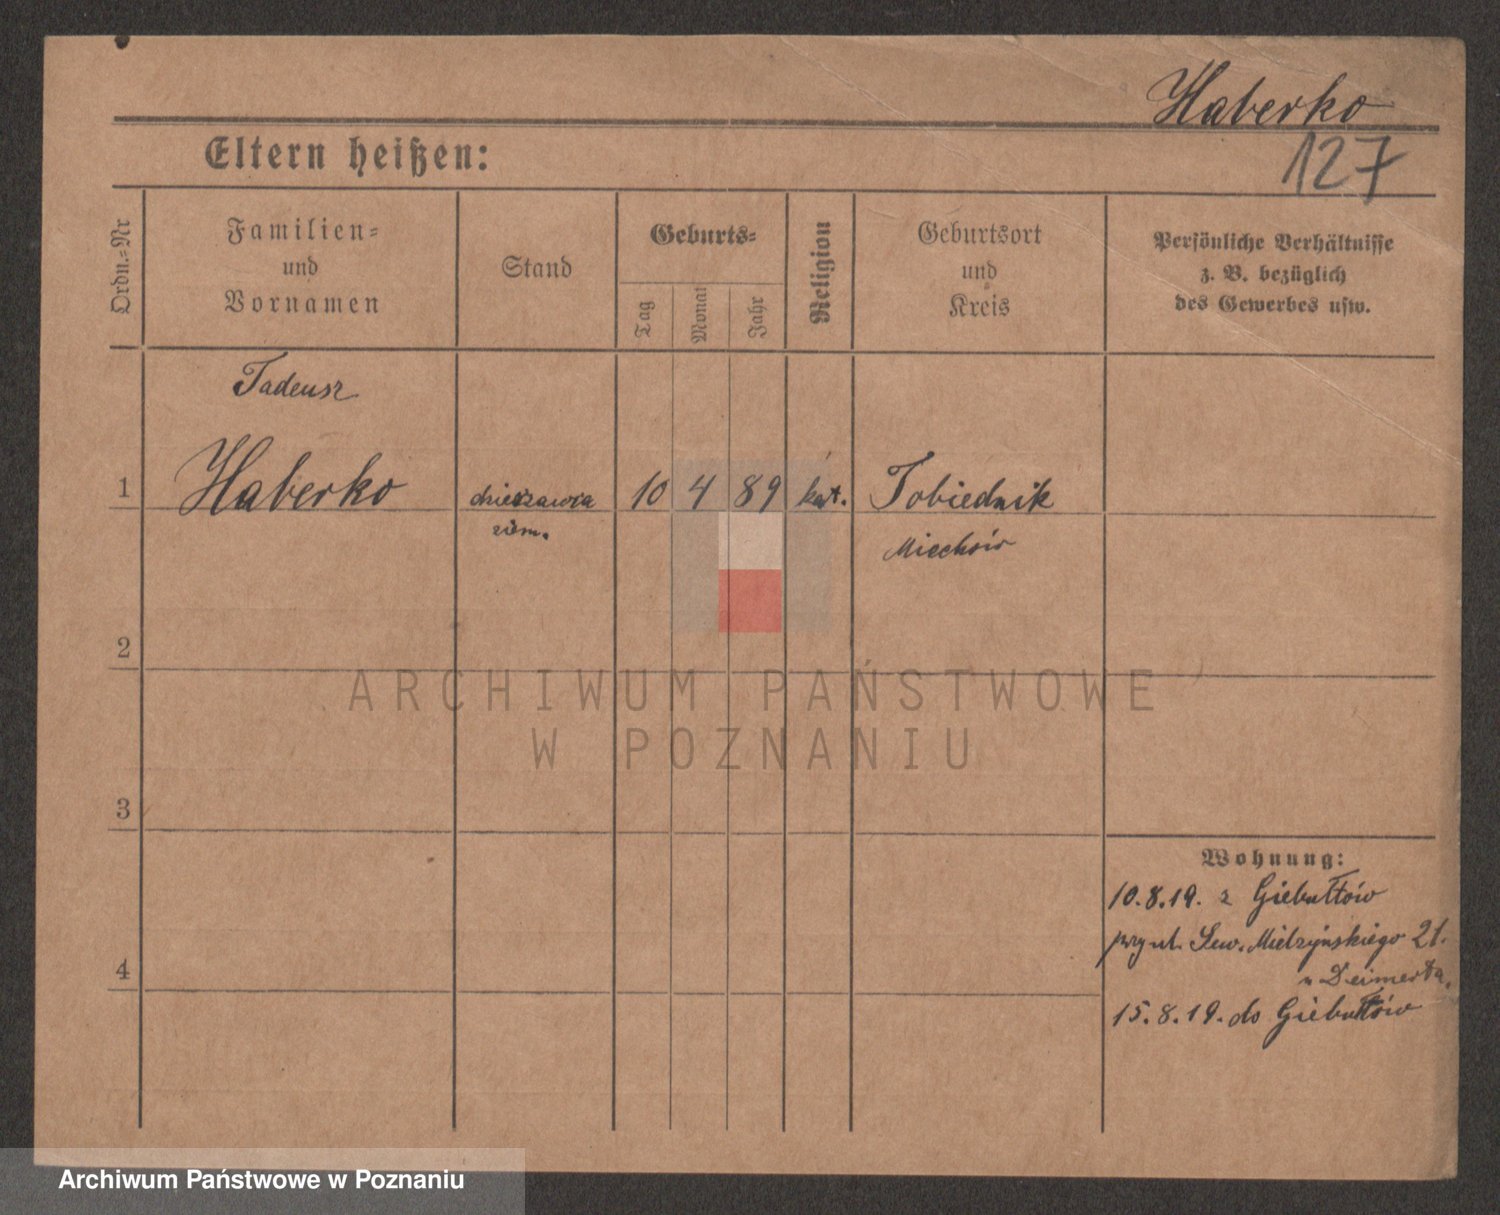 Haberko
127
Eltern heißen:
Ordn.-Nr
Familien-
und
Vornamen
Stand
Geburts-
Tag
Monat
Jahr
Religion
Geburtsort
und
Kreis
Persönliche Verhältnisse
z. B. bezüglich
des Gewerbes usw.
Tadeusz
1 Haberko dzierżawca 10 4 89 kat. Tobiednik
ziem. Miechów
2
ARCHIWUM PAŃSTWOWE
W POZNANIU
3
Wohnung:
10.8.19. z Giebułtów
przy ul. Sew. Mielżyńskiego 21.
u Deimerta.
4
15.8.19. do Giebułtów
Archiwum Państwowe w Poznaniu